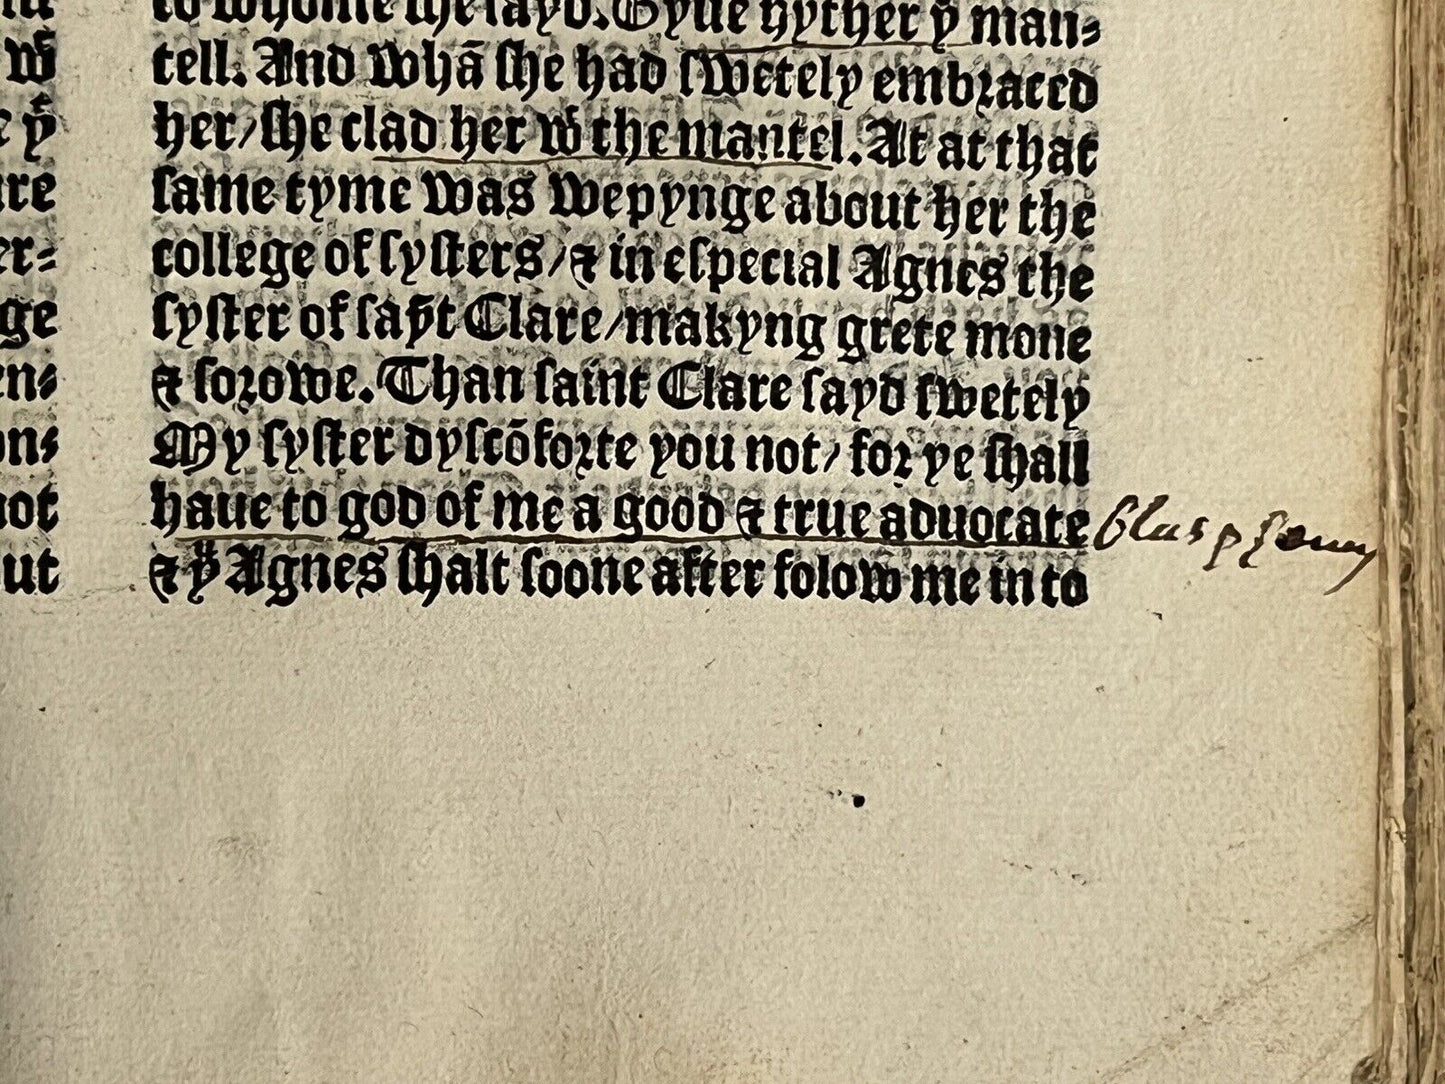 to whome she sayd. Gyue hyther yͤ man⸗
tell. And whā she had swetely embraced
her/she clad her wͭ the mantel. At at that
same tyme was wepynge about her the
college of systers/⁊ in especial Agnes the
syster of saȳt Clare/makyng grete mone
⁊ sorowe. Than saint Clare sayd swetely
My syster dyscōforte you not/ for ye shall
haue to god of me a good ⁊ true aduocate
Blasphemy
⁊ yͧ Agnes shalt soone after folow me in to
w
yͭ
re
er⸗
ge
en⸗
on⸗
not
ut